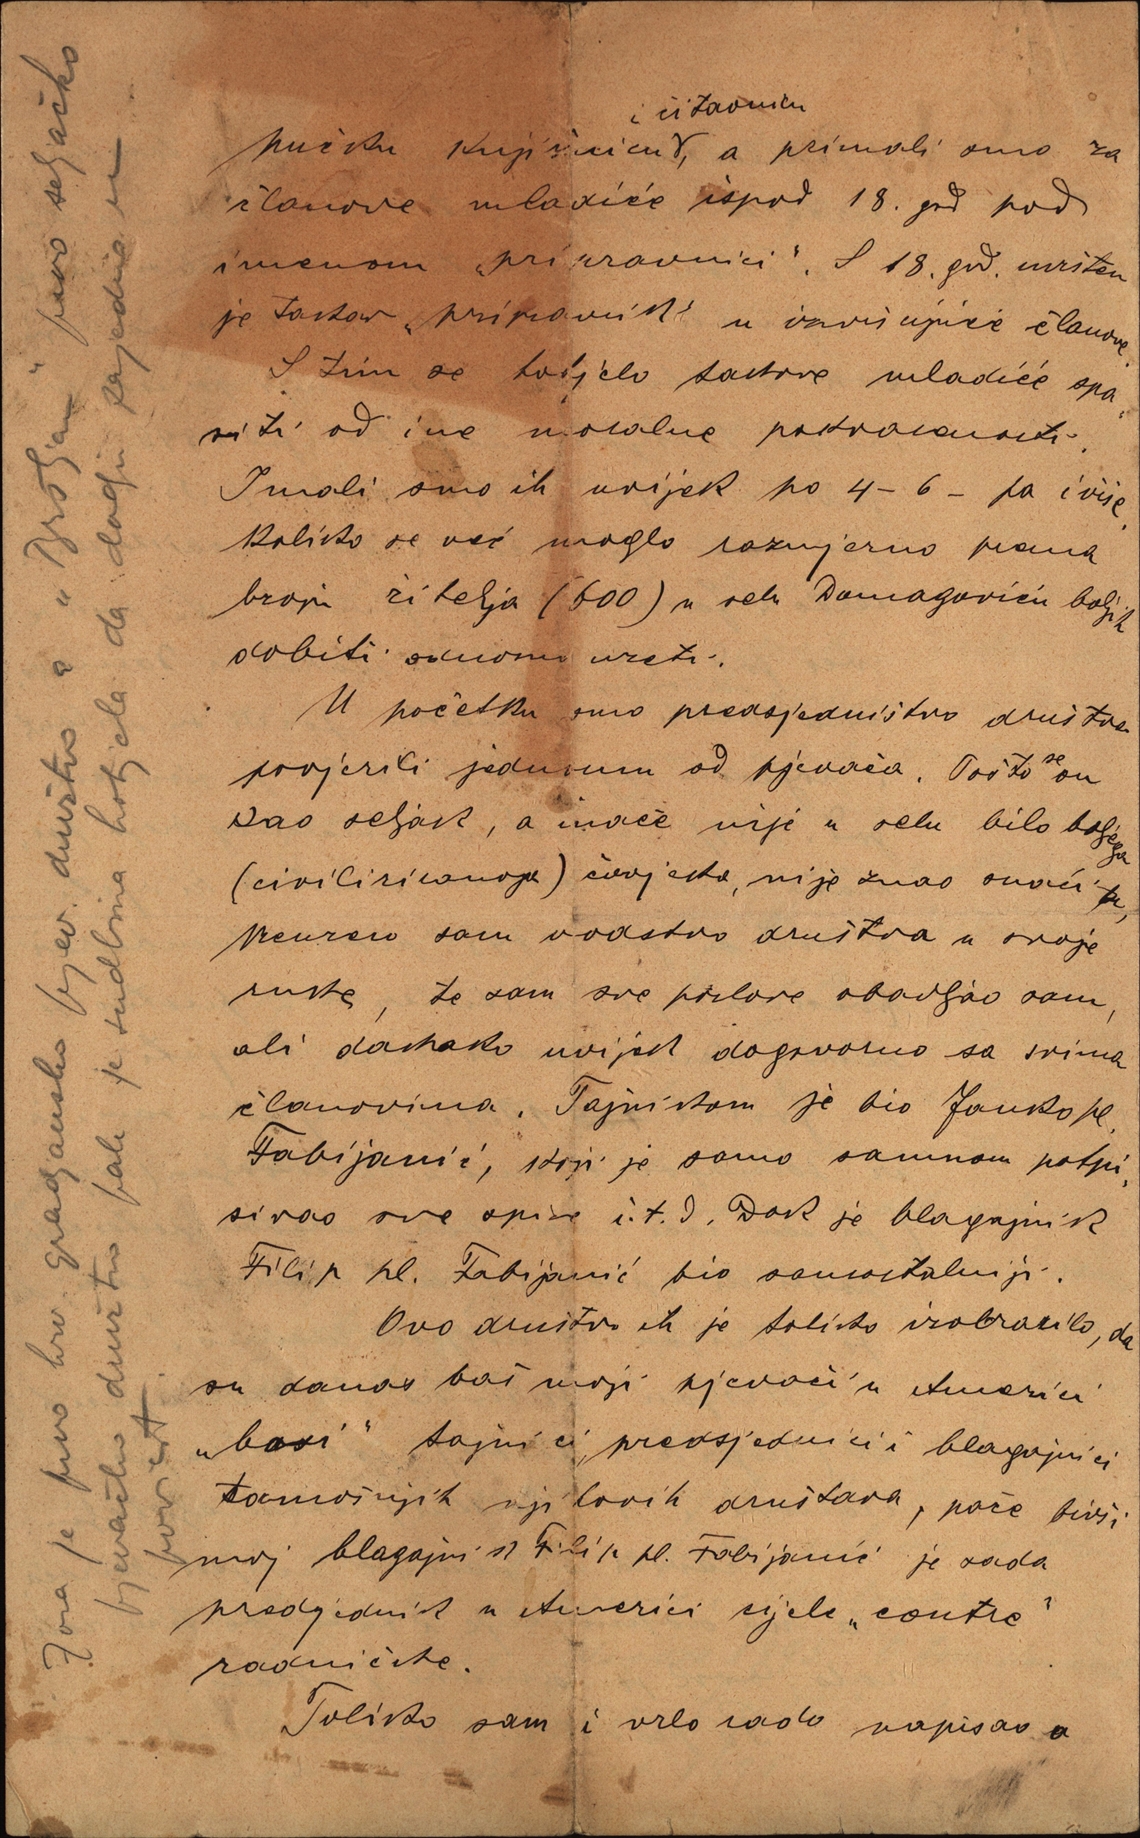 i čitaonicu
pučku knjižnicu, a primali smo za
članove mladiće ispod 18. god pod
imenom „pripravnici“. S 18. god. uvršten
je takav „pripravnik“ u izvršujuće članove.
S tim se htjelo takove mladiće spa„
siti od ine moralne pokvarenosti.
Imali smo ih uvijek po 4–6 – pa i više,
koliko se već moglo razmjerno prama
broju žitelja (600) u selu Domagoviću boljih
dobiti odnosno uzeti.
U početku smo predsjedništvo društva
povjerili jednomu od pjevača. Pošto se on
kao seljak, a inače nije u selu bilo boljega
(civiliziranoga) čovjeka, nije znao snaći
preuzeo sam vodstvo društva u svoje
ruke, te sam sve poslove obavljao sam,
ali dakako uvijek dogovorno sa svima
članovima. Tajnikom je bio Janko pl.
Fabijanić, koji je samo samnom potpi„
sivao sve spise i.t.d. Dok je blagajnik
Filip pl. Fabijanić bio samostalniji.
Ovo društvo ih je toliko izobrazilo, da
su danas baš moji pjevači u Americi
„basi“ tajnici, predsjednici i blagajnici
tamošnjih njihovih društava, pače bivši
moj blagajnik Filip pl. Fabijanić je sada
predsjednik u Americi cijele „centre“
radničke.
Toliko sam i vrlo rado napisao a
Jeka je prvo hrv. gradjansko pjev. društvo a „Bršljan“ prvo seljačko
pjevačko društvo pak je sudbina hotjela da dodju zajedno u
povjest